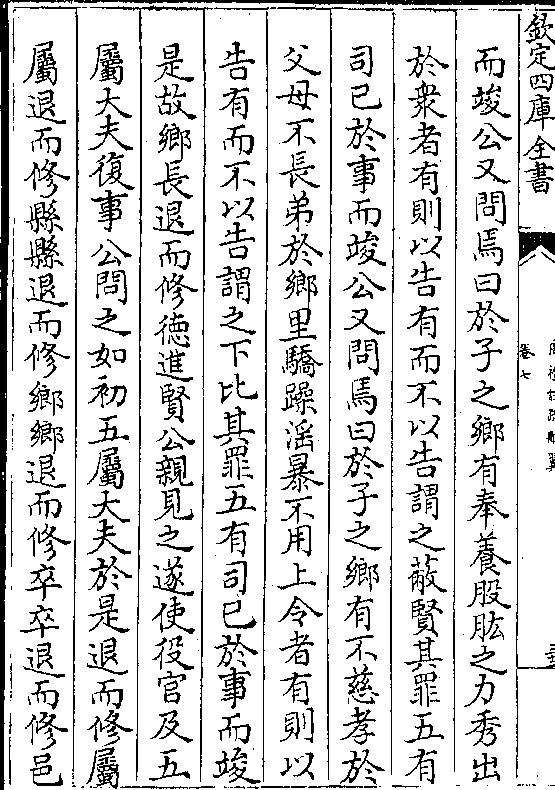 欽定四庫全書
卷七
而竣公又問焉曰於子之鄉有奉養股肱之力秀出
於衆者有則以告有而不以告謂之蔽賢其罪五有
司已於事而竣公又問焉曰於子之鄉有不慈孝於
父母不長弟於鄉里驕躁淫暴不用上令者有則以
告有而不以告謂之下比其罪五有司已於事而竣
是故鄉長退而修德進賢公親見之遂使役官及五
屬大夫復事公問之如初五屬大夫於是退而修屬
屬退而修縣縣退而修鄉鄉退而修卒卒退而修邑